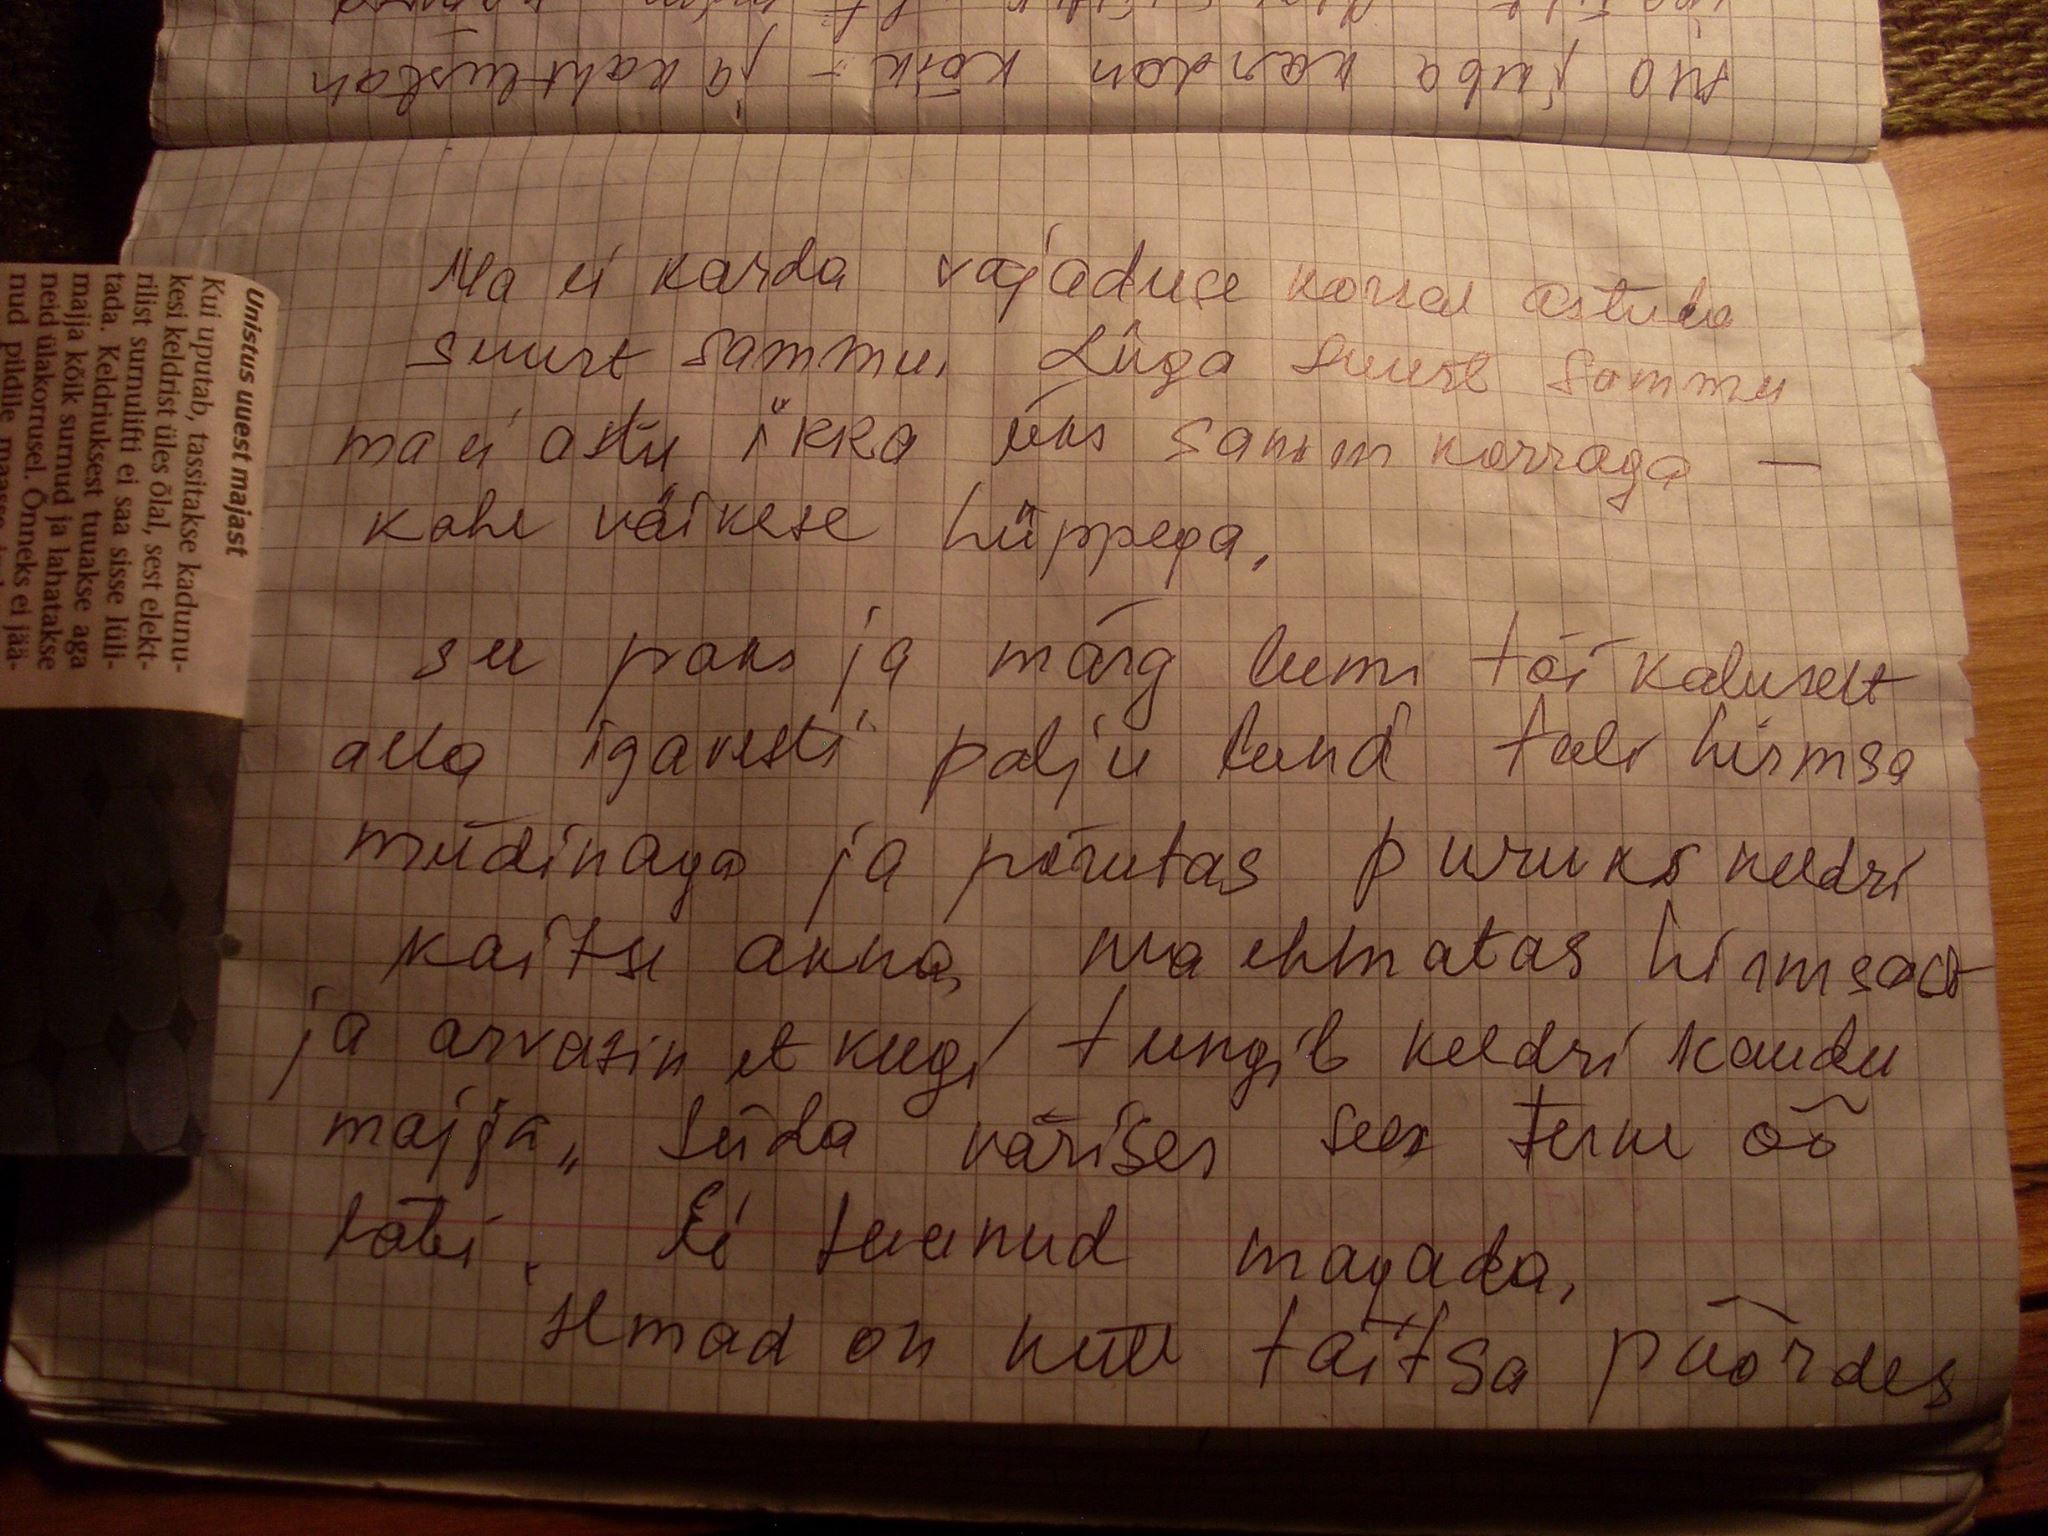 Ma ei karda vajaduse korral astuda
suurt sammu. Liiga suurt sammu
ma ei astu ikka üks samm korraga —
kahe väikese hüppega,
see paks ja märg lumi tõi katuselt
alla igavesti palju lund tuli hirmsa
müdinaga ja põrutas puruks keldri
kaitse akna, ma ehmatas hirmsast
ja arvasin et keegi tungib keldri kaudu
majja,, süda värises sees terve öö
läbi. Ei saanud magada,
Ilmad on küll täitsa pöördes
ma juba kardan kõik - ja kahtlustan
Unistus uuest majast
Kui uputab, tassitakse kadunu-
kesi keldrist üles õlal, sest elekt-
rilist surnulifti ei saa sisse lüli-
tada. Keldriuksest tuuakse aga
majja kõik surnud ja lahatakse
neid ülakorrusel. Õnneks ei jää-
nud pildile maasse